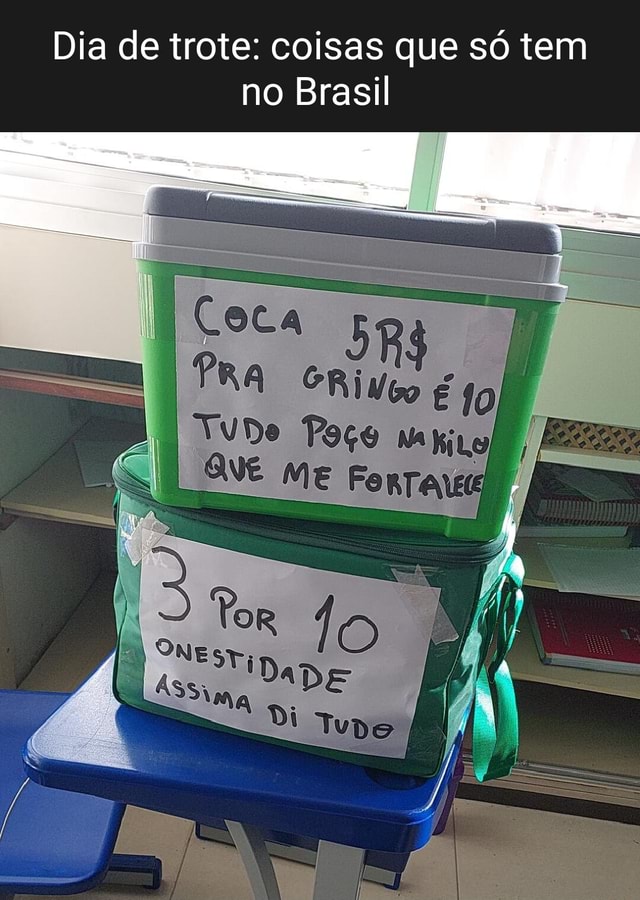 Dia de trote: coisas que só tem
no Brasil
COCA 5R$
PRA GRiNGO É 10
TUDO POÇO NAKiLO
QUE ME FORTALECE
3 POR 10
ONESTiDADE
ASSiMA Di TUDO